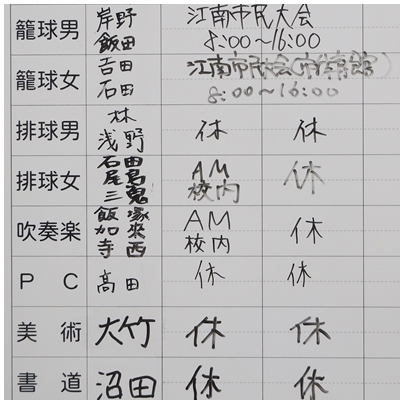 籠球男 岸野 江南市民大会
飯田 8:00～16:00
籠球女 吉田 江南市民大会
石田 8:00～16:00
排球男 林 休 休
浅野
排球女 石田 AM 休
尾関 校内
三鬼
吹奏楽 飯塚 AM 休
加来 校内
寺西
PC 高田 休 休
美術 大竹 休 休
書道 沼田 休 休